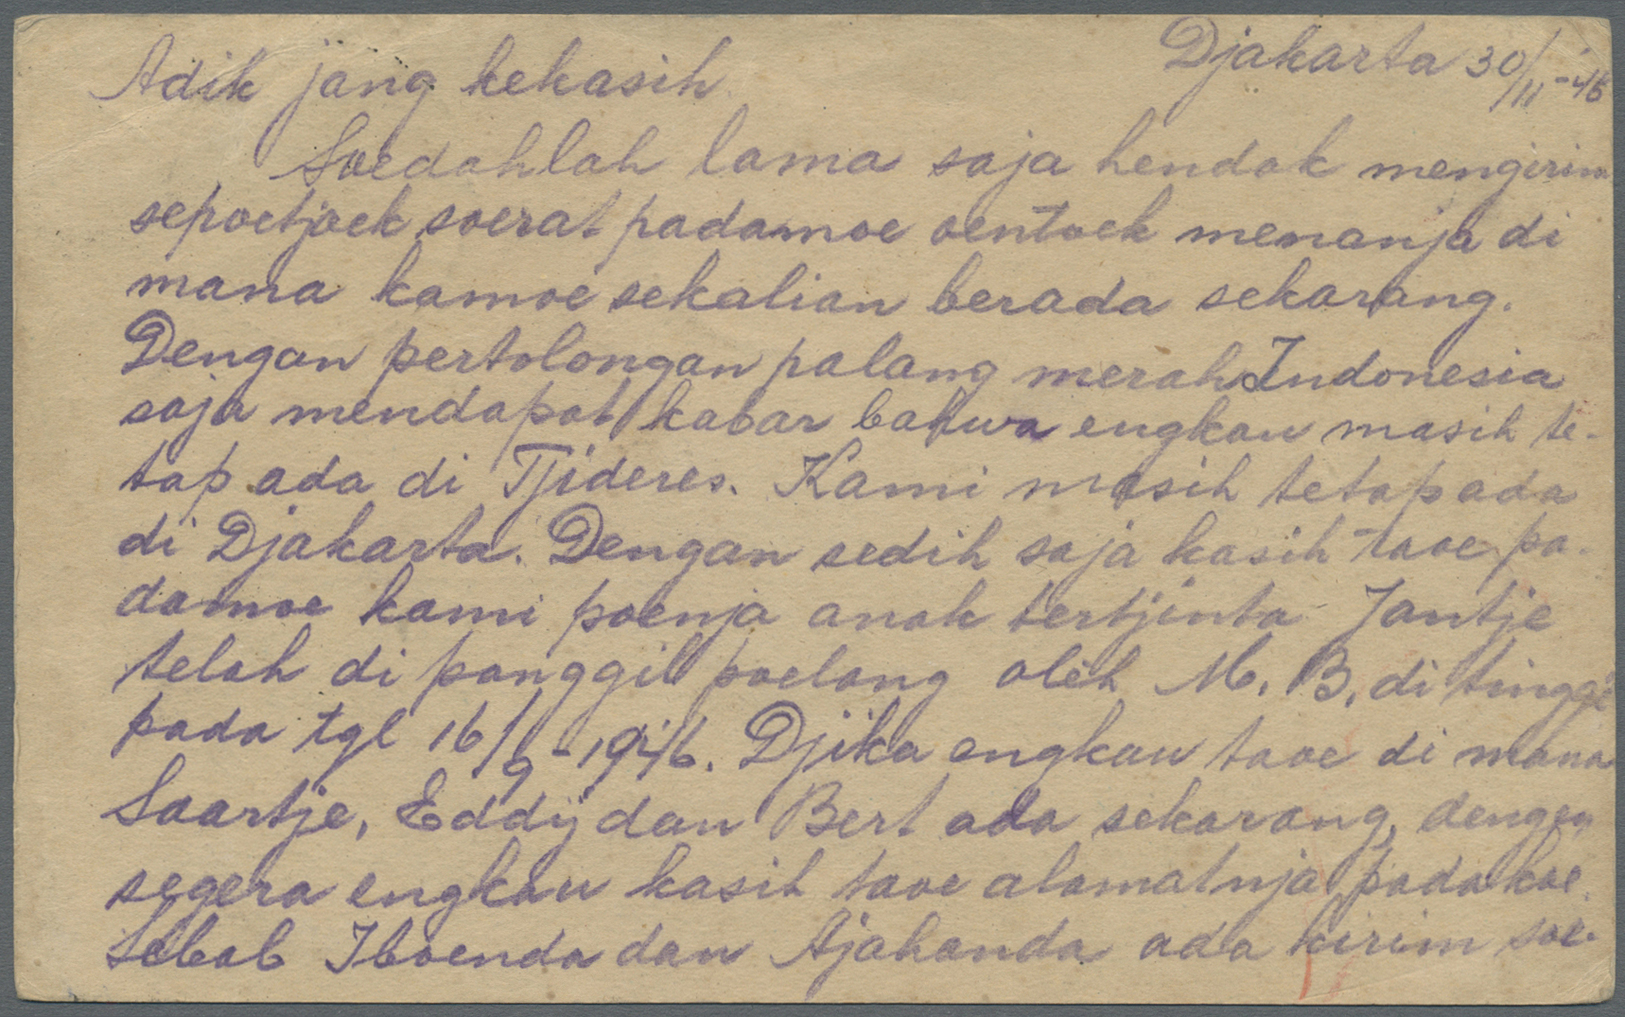 Djakarta 30/11-'46
Adik jang kekasih
Soedahlah lama saja hendak mengirim
sepoetjoek soerat padamoe oentoek menanja di
mana kamoe sekalian berada sekarang.
Dengan pertolongan palang merah Indonesia
saja mendapat kabar bahwa engkau masih te-
tap ada di Tjideres. Kami masih tetap ada
di Djakarta. Dengan sedih saja kasih taoe pa-
damoe kami poenja anak tertjinta Jantje
telah di panggil poelang oleh M. B. di tinggi
pada tgl 16/9-1946. Djika engkau taoe di mana
Saartje, Eddij dan Bert ada sekarang, dengan
segera engkau kasih taoe alamatnja padakoe.
Sebab Iboenda dan Ajahanda ada kirim soe-